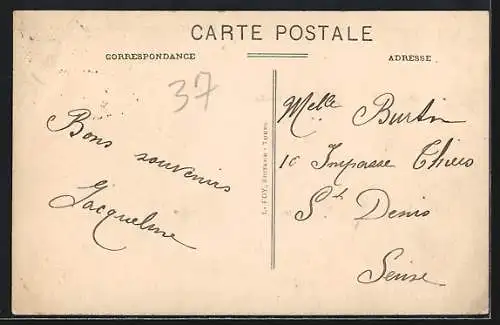 CARTE POSTALE
CORRESPONDANCE
ADRESSE
37
Bons souvenirs
Jacqueline
Melle Burtin
10 Impasse Thiers
St Denis
Seine
L. FOY, EDITEUR - TOURS